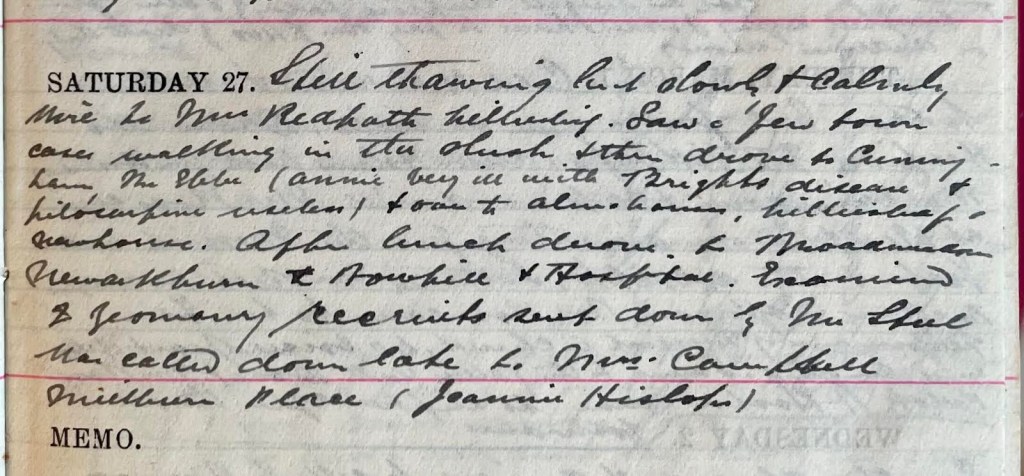 SATURDAY 27. Still thawing but slowly & calmly
Wire to Mrs Redpath . Saw a few town
cases walking in the slush & then drove to Cunning-
ham, The (Annie very ill with Brights disease &
pilocarpine useless) & out to
Newhouse. After lunch drove to Broadmeadows
Newarkburn & Bowhill & Hospital. Examined
8 Yeomanry recruits sent down by Mr Steel
Was called down late to Mrs. Campbell
Millburn Place (Jeannie Hislop)
MEMO.
WEDNESDAY 2